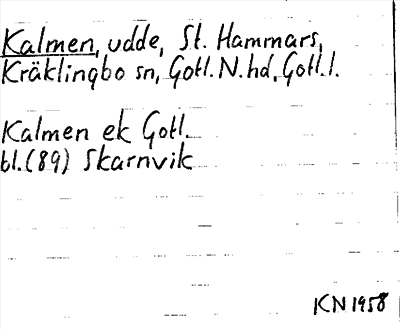 Kalmen, udde, St. Hammars,
Kräklingbo sn, Gotl. N. hd, Gotl. l.
Kalmen ek Gotl.
bl. (89) Skarnvik
KN 1958